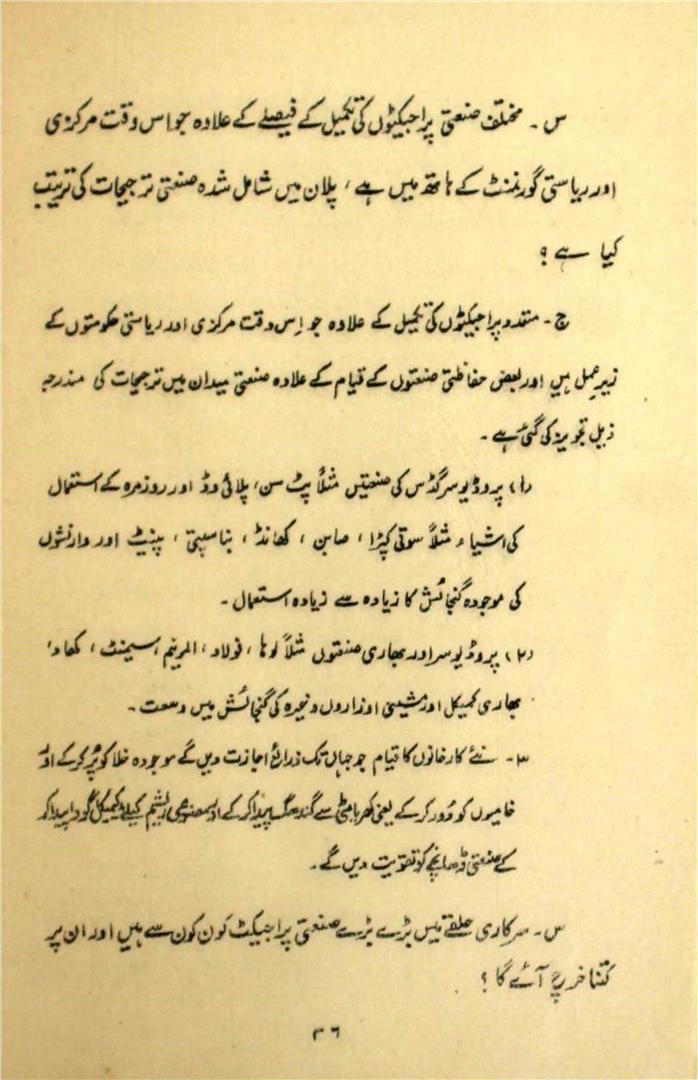 س۔ مختلف صنعتی پراجیکٹوں کی تکمیل کے فیصلے کے علاوہ جو اس وقت مرکزی
اور ریاستی گورنمنٹ کے ہاتھ میں ہے، پلان میں شامل شدہ صنعتی ترجیحات کی ترتیب
کیا ہے؟
ج۔ متعدد پراجیکٹوں کی تکمیل کے علاوہ جو اِس وقت مرکزی اور ریاستی حکومتوں کے
زیرِ عمل ہیں اور بعض حفاظتی صنعتوں کے قیام کے علاوہ صنعتی میدان میں ترجیحات کی مندرجہ
ذیل تجویز کی گئی ہے۔
(۱) پروڈیوسر گڈس کی صنعتیں مثلاً پٹ سن، پلائی وڈ اور روزمرہ کے استعمال
کی اشیاء مثلاً سوتی کپڑا، صابن، کھانڈ، بناسپتی، پینٹ اور وارنشوں
کی موجودہ گنجائش کا زیادہ سے زیادہ استعمال۔
(۲) پروڈیوسر اور بھاری صنعتوں مثلاً لوہا، فولاد، المونیم، سیمنٹ، کھاد،
بھاری کمیکل اور مشینی اوزاروں وغیرہ کی گنجائش میں وسعت۔
۳۔ نئے کارخانوں کا قیام جو جہاں تک ذرائع اجازت دیں گے موجودہ خلا کو پُر کر کے اور
خامیوں کو دُور کر کے یعنی کھریا مٹی سے گندھک پیدا کر کے اور مصنوعی ریشم کیلئے کمیکل گودا پیدا کر
کے صنعتی ڈھانچے کو تقویت دیں گے۔
س۔ سرکاری حلقے میں بڑے بڑے صنعتی پراجیکٹ کون کون سے ہیں اور ان پر
کتنا خرچ آئے گا؟
۳۶